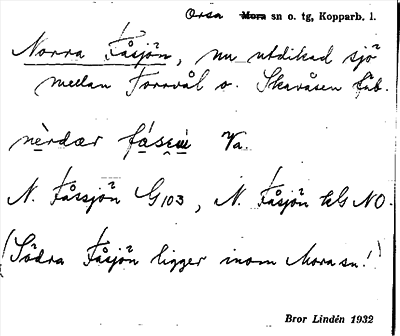 Orsa Mora sn o. tg, Kopparb. l.
Norra Fåsjön, nu utdikad sjö
mellan Torrvål o. Skaråsen fäb.
nèrdær fásæ̨ı̨ Va.
N. Fåssjön G103, N. Fåsjön kG NO.
(Södra Fåsjön ligger inom Mora sn!)
Bror Lindén 1932